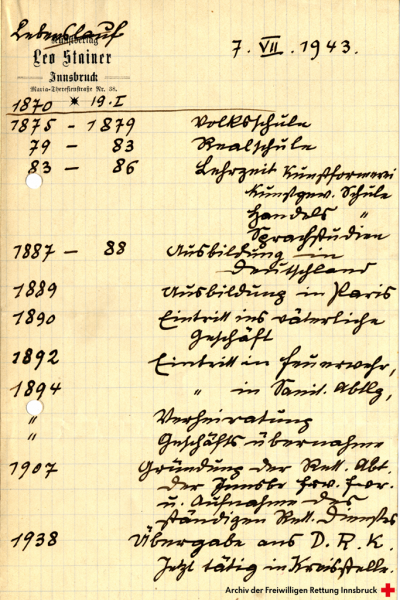 Lebenslauf
Kunstverlag
Leo Stainer
Innsbruck
Maria-Theresienstraße Nr. 38.
7. VII. 1943.
1870 * 19. I
1875 – 1879 Volksschule
79 – 83 Realschule
83 – 86 Lehrzeit Kunstformerei
Kunstgew. Schule
Handels "
Sprachstudien
1887 – 88 Ausbildung in
Deutschland
1889 Ausbildung in Paris
1890 Eintritt ins väterliche
Geschäft
1892 Eintritt in Feuerwehr,
1894 " in Sanit. Abtlg,
" Verheiratung
" Geschäfts übernahme
1907 Gründung der Rett. Abt.
der Innsbr frw.
u. Aufnahme des
ständigen Rett. Dienstes
1938 Übergabe ans D. R. K.
Jetzt tätig in Kreisstelle.
Archiv der Freiwilligen Rettung Innsbruck